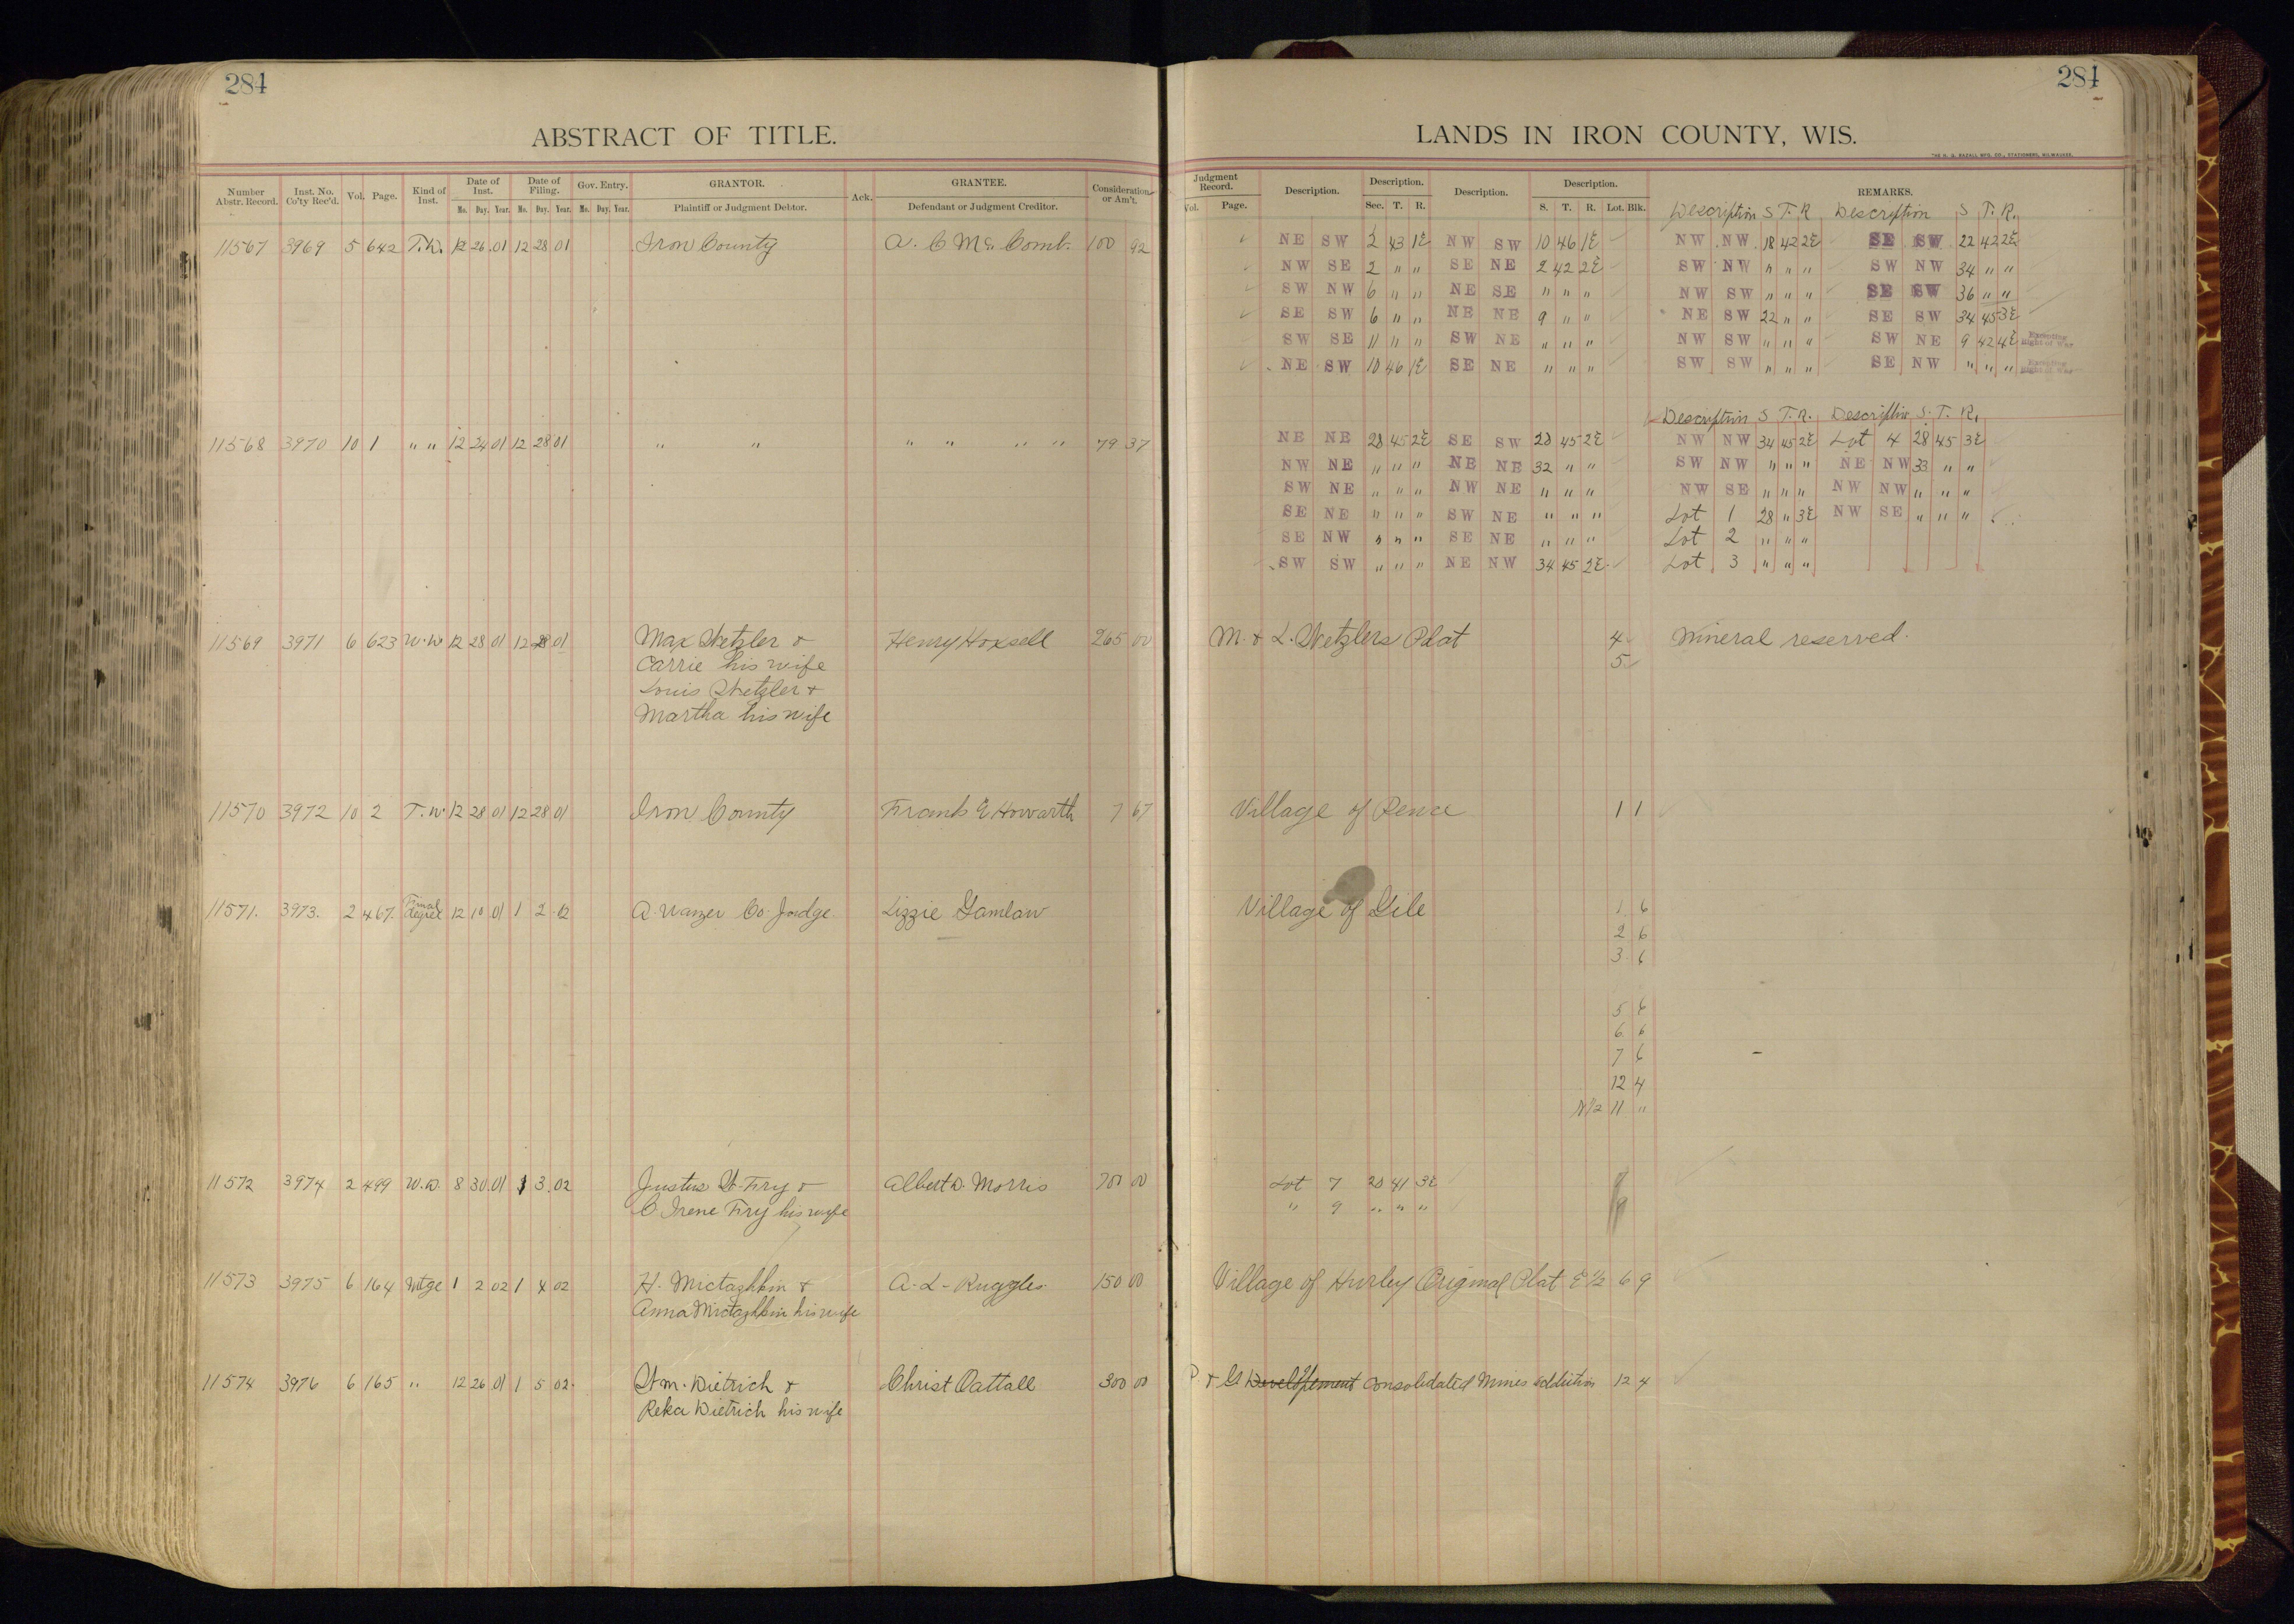 284
ABSTRACT OF TITLE.
Number Abstr. Record. Inst. No. Co'ty Rec'd. Vol. Page. Kind of Inst. Date of Inst. Mo. Day. Year. Date of Filing. Mo. Day. Year. Gov. Entry. Mo. Day. Year. GRANTOR. Plaintiff or Judgment Debtor. Ack. GRANTEE. Defendant or Judgment Creditor. Consideration or Am't.
11567 3969 5 642 T.D. 12 26 01 12 28 01 Iron County A. C Mc. Comb. 100 92
11568 3970 10 1 " " 12 24 01 12 28 01 " " " " " " 79 37
11569 3971 6 623 W.W 12 28 01 12 28 01 Max & Henry Hoxsell 265 00
Carrie his wife
Louis &
Martha his wife
11570 3972 10 2 T.W. 12 28 01 12 28 01 Iron County Frank E Howarth 7 67
11571. 3973. 2 467. Final degree 12 10 01 1 2 02 A. Wanzer Co. Judge Lizzie Gamlaw
11572 3974 2 499 W.D. 8 30 01 1 3 02 Justus W. Fry & Albert D. Morris 700 00
C. Irene Fry his wife
11573 3975 6 164 Mtge 1 2 02 1 4 02 H. & A. L. Ruggles 150 00
Anna his wife
11574 3976 6 165 " 12 26 01 1 5 02 Wm. Dietrich & Christ Cattall 300 00
Reka Dietrich his wife
284
LANDS IN IRON COUNTY, WIS.
THE H. G. RAZALL MFG. CO., STATIONERS, MILWAUKEE.
Judgment Record. Vol. Page. Description. Description. Sec. T. R. Description. Description. S. T. R. Lot. Blk. REMARKS.
Description S T. R Description S T. R.
NE SW 2 43 1E NW SW 10 46 1E NW NW 18 42 2E SE SW 22 42 2E
NW SE 2 " " SE NE 2 42 2E SW NW " " " SW NW 34 " "
SW NW 6 " " NE SE " " " NW SW " " " SE SW 36 " "
SE SW 6 " " NE NE 9 " " NE SW 22 " " SE SW 34 45 3E
SW SE 11 " " SW NE " " " NW SW " " " SW NE 9 42 4E Excepting Right of Way
NE SW 10 46 1E SE NE " " " SW SW " " " SE NW " " " Excepting Right of Way
Description S T. R. Description S. T. R.
NE NE 28 45 2E SE SW 28 45 2E NW NW 34 45 2E Lot 4 28 45 3E
NW NE " " " NE NE 32 " " SW NW " " " NE NW 33 " "
SW NE " " " NW NE " " " NW SE " " " NW NW " " "
SE NE " " " SW NE " " " Lot 1 28 " 3E NW SE " " "
SE NW " " " SE NE " " " Lot 2 " " "
SW SW " " " NE NW 34 45 2E Lot 3 " " "
M. & L. Plat 4 Mineral reserved.
5
Village of Pence 1 1
Village of Gile 1 6
2 6
3 6
5 6
6 6
7 6
12 4
N 1/2 11 "
Lot 7 28 41 3E
" 9 " " "
Village of Hurley Original Plat E 1/2 6 9
P & G Developement Consolidated Mines addition 12 4